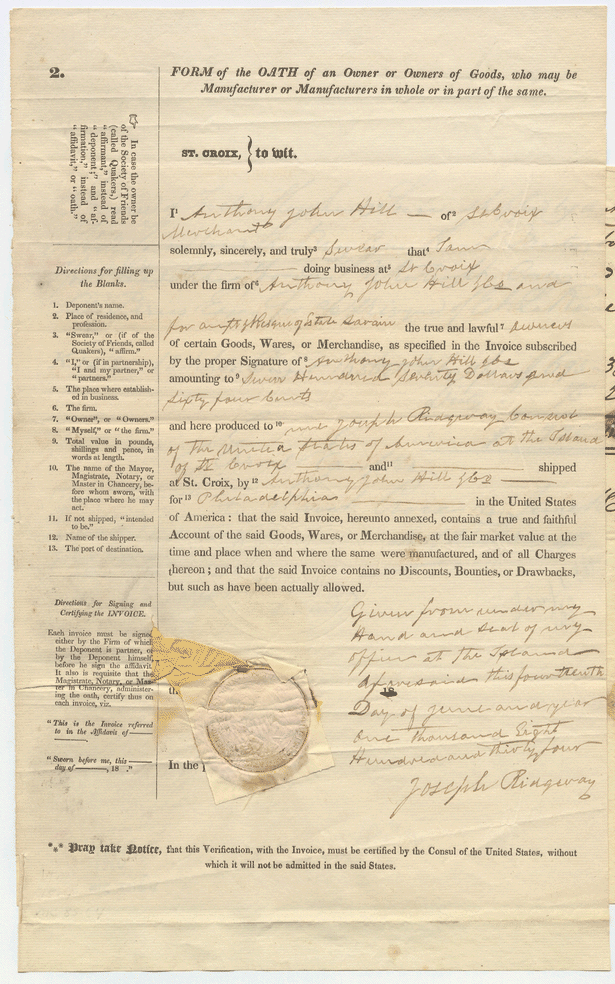 2.
FORM of the OATH of an Owner or Owners of Goods, who may be
Manufacturer or Manufacturers in whole or in part of the same.
☞ In case the owner be
of the Society of Friends
(called Quakers,) read
"affirmant," instead of
"deponent;" and "af-
firmation," instead of
"affidavit," or "oath."
ST. CROIX, } to wit.
I¹ Anthony John Hill — of² St Croix
Merchant
solemnly, sincerely, and truly³ Swear that⁴ I am
doing business at⁵ St Croix
under the firm of⁶ Anthony John Hill & Co and
the true and lawful⁷ owners
of certain Goods, Wares, or Merchandise, as specified in the Invoice subscribed
by the proper Signature of⁸ Anthony John Hill & Co
amounting to⁹ Seven Hundred Seventy Dollars and
Sixty four Cents
and here produced to¹⁰ me Joseph Ridgway Consul
of the United States of America at the Island
of St Croix and¹¹ shipped
at St. Croix, by¹² Anthony John Hill & Co
for¹³ Philadelphia in the United States
of America: that the said Invoice, hereunto annexed, contains a true and faithful
Account of the said Goods, Wares, or Merchandise, at the fair market value at the
time and place when and where the same were manufactured, and of all Charges
thereon; and that the said Invoice contains no Discounts, Bounties, or Drawbacks,
but such as have been actually allowed.
Given from under my
Hand and seal of my
office at the Island
aforesaid this fourteenth
th 18
Day of June and year
One thousand Eight
Hundred and thirty four
In the p
Joseph Ridgway
Directions for filling up
the Blanks.
1. Deponent's name.
2. Place of residence, and
profession.
3. "Swear," or (if of the
Society of Friends, called
Quakers), "affirm."
4. "I," or (if in partnership),
"I and my partner," or
"partners."
5. The place where establish-
ed in business.
6. The firm.
7. "Owner", or "Owners."
8. "Myself," or "the firm."
9. Total value in pounds,
shillings and pence, in
words at length.
10. The name of the Mayor,
Magistrate, Notary, or
Master in Chancery, be-
fore whom sworn, with
the place where he may
act.
11. If not shipped, "intended
to be."
12. Name of the shipper.
13. The port of destination.
Directions for Signing and
Certifying the INVOICE.
Each invoice must be signed
either by the Firm of which
the Deponent is partner, or
by the Deponent himself,
before he sign the affidavit.
It also is requisite that the
Magistrate, Notary, or Mas-
ter in Chancery, administer-
ing the oath, certify thus on
each invoice, viz.
"This is the Invoice referred
to in the Affidavit of ———
———
"Sworn before me, this ———
day of ———, 18 ."
*** Pray take Notice, that this Verification, with the Invoice, must be certified by the Consul of the United States, without
which it will not be admitted in the said States.